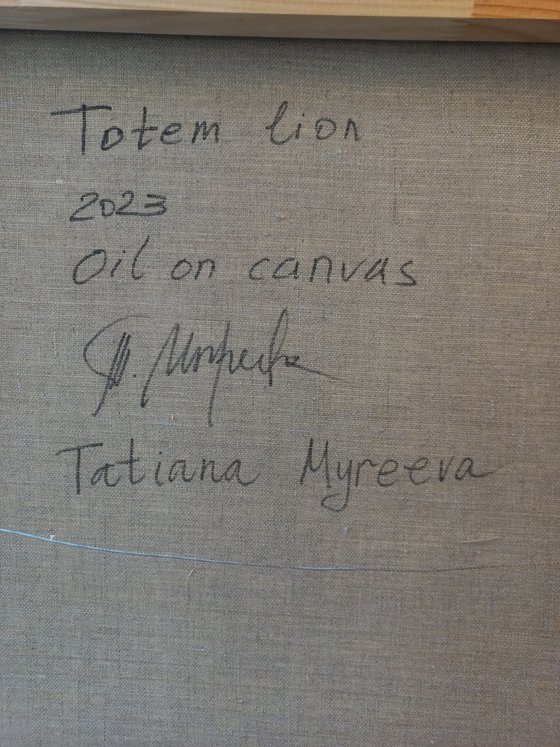 Totem lion
2023
Oil on canvas
Tatiana Myreeva